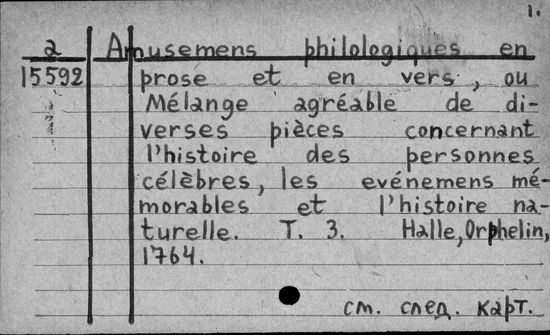 1.
2 Amusemens philologiques en
15592 prose et en vers, ou
Mélange agréable de di-
verses pièces concernant
l'histoire des personnes
célèbres, les evénemens mé-
morables et l'histoire na-
turelle. T. 3. Halle, Orphelin,
1764.
см. след. карт.